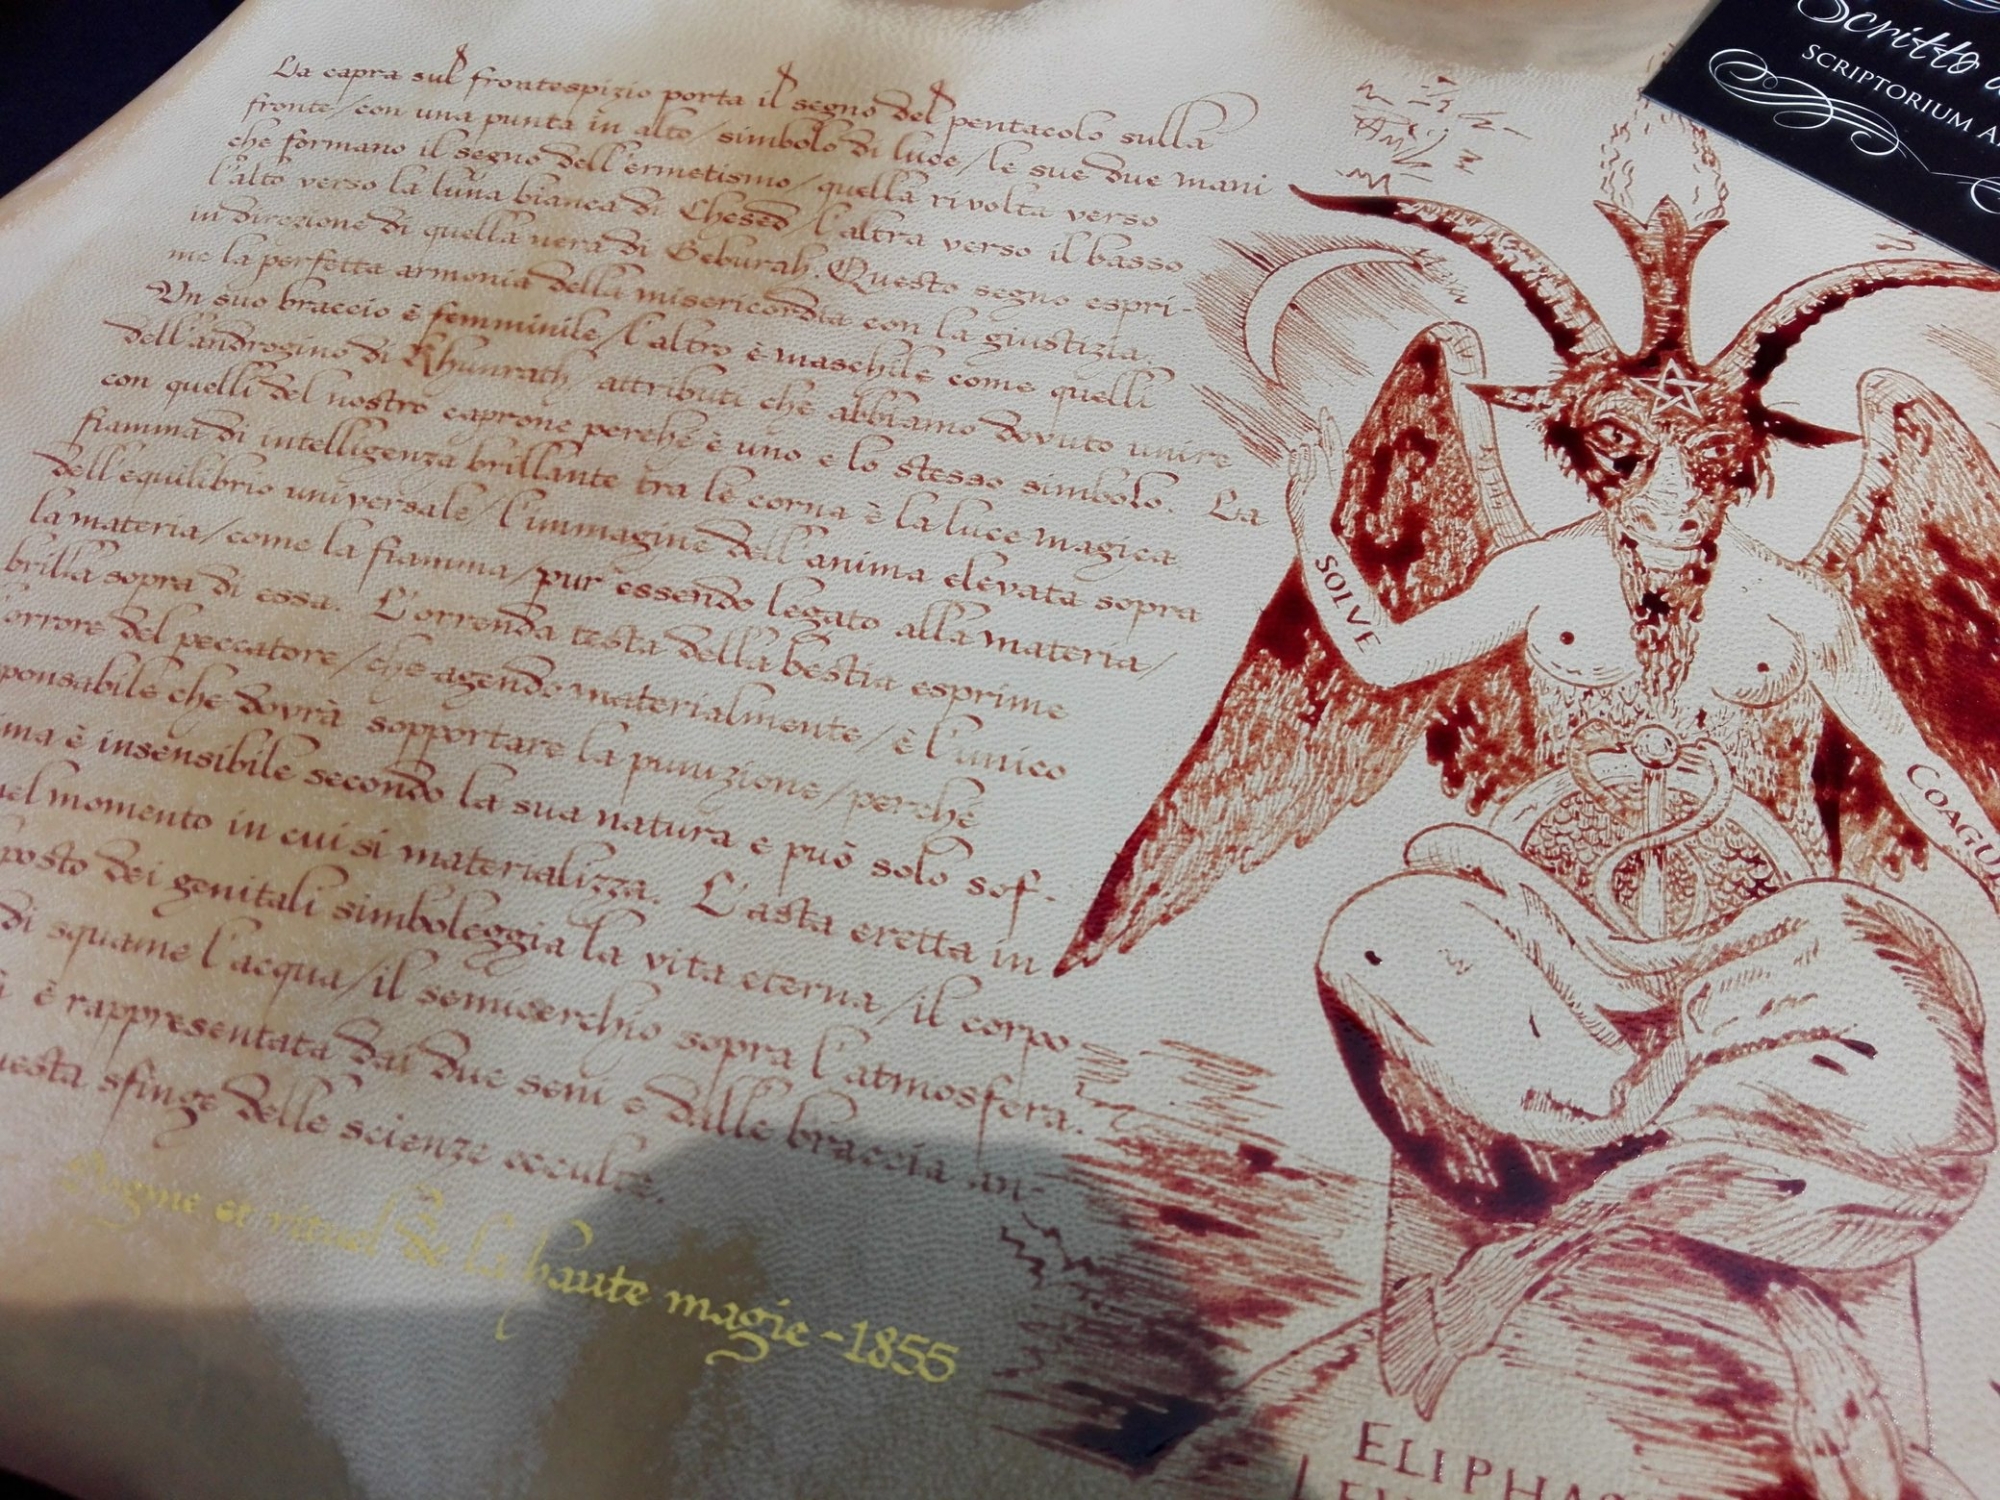 La capra sul frontespizio porta il segno del pentacolo sulla
fronte/con una punta in alto/simbolo di luce/le sue due mani
che formano il segno dell'ermetismo/quella rivolta verso
l'alto verso la luna bianca di Chesed/l'altra verso il basso
in direzione di quella nera di Geburah. Questo segno espri-
me la perfetta armonia della misericordia con la giustizia.
Un suo braccio è femminile/l'altro è maschile come quelli
dell'androgino di Khunrath/attributi che abbiamo dovuto unire
con quelli del nostro caprone perché è uno e lo stesso simbolo. La
fiamma di intelligenza brillante tra le corna è la luce magica
dell'equilibrio universale/l'immagine dell'anima elevata sopra
la materia/come la fiamma/pur essendo legato alla materia/
brilla sopra di essa. L'orrenda testa della bestia esprime
orrore del peccatore/che agendo materialmente/è l'unico
ponsabile che dovrà sopportare la punizione/perché
ma è insensibile secondo la sua natura e può solo sof-
el momento in cui si materializza. L'asta eretta in
posto dei genitali simboleggia la vita eterna/il corpo
di squame l'acqua/il semicerchio sopra l'atmosfera.
è rappresentata dai due seni e dalle braccia an-
uesta sfinge delle scienze occulte.
Dogme et rituel de la haute magie-1855
SOLVE
COAGU
ELIPHAS
Scritto
SCRIPTORIUM